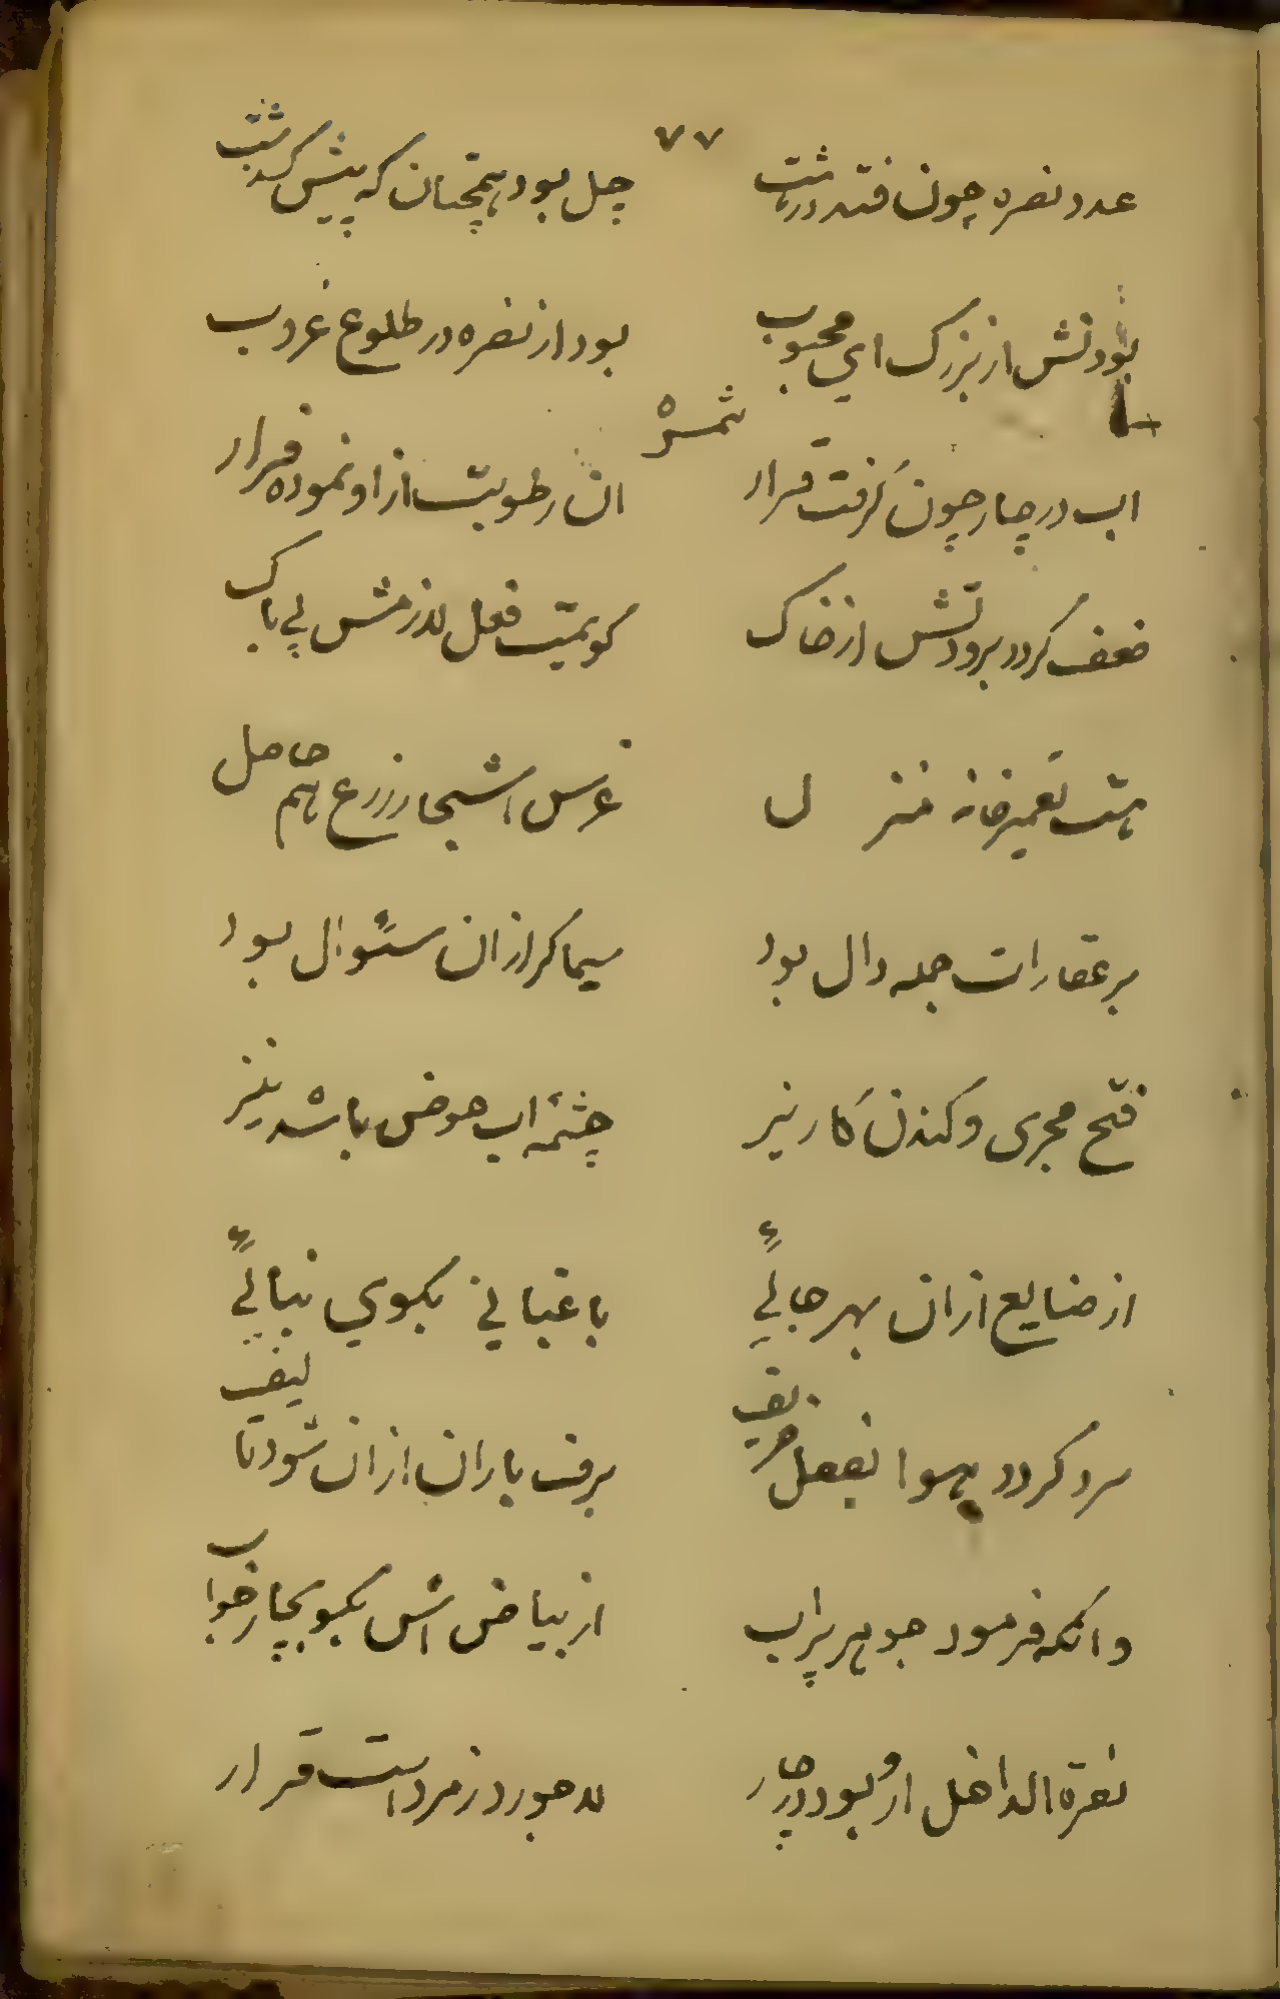 ۷۷
عدد نصره چون فتد در هشت چل بود همچنان که پیش گذشت
بودنش از بزرک ای محبوب بود از نصره در طلوع غروب
ثمره
اب در چار چون گرفت قرار ان رطوبت از او نموده فرار
ضعف کردد برودتش از خاک کویمت فعل لازمش پی باک
هست تعمیر خانه منزل غرس اشجار زرع هم حاصل
بر عقارات جمله دال بود سیما کر از ان سئوال بود
فتح مجری و کندن کاریز چشمه اب حوض باشد نیز
از ضایع ازان بهر جائی باغبانی بکوی بنائی
سرد کردد هوا بفصل خریف برف باران ازان شود تالیف
وانکه فرمود جوهر پر اب از بیاض اش بکو بچار خواب
نقرة الداخل ار بود در چار لاجورد زمرد است قرار